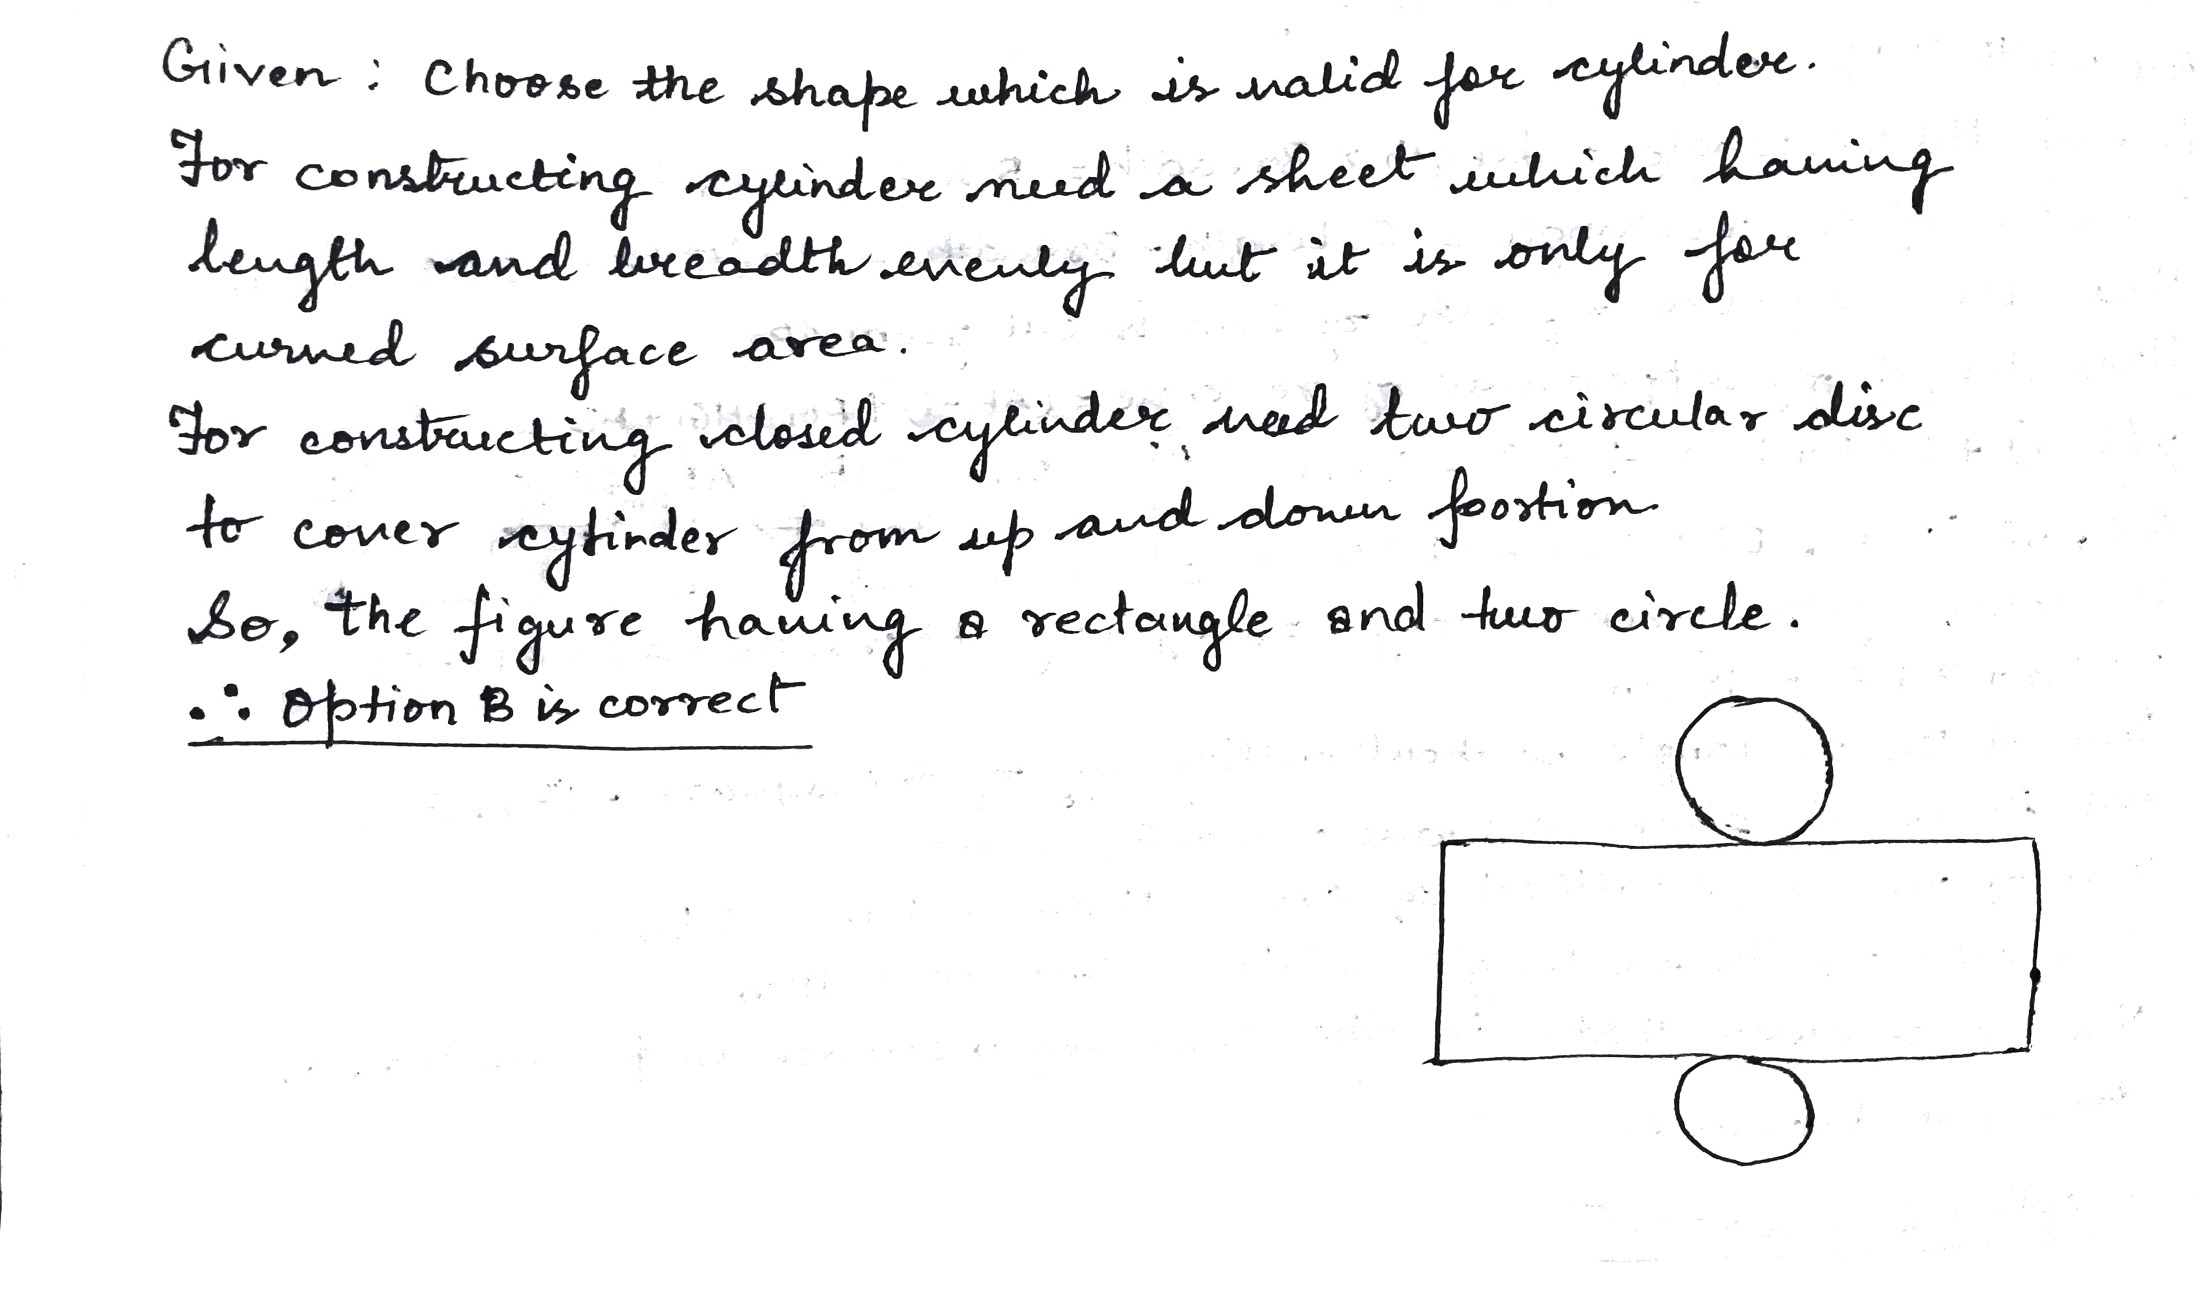 Given : Choose the shape which is valid for cylinder.
For constructing cylinder need a sheet which having
length and breadth evenly but it is only for
curved surface area.
For constructing closed cylinder need two circular disc
to cover cylinder from up and down portion
So, the figure having a rectangle and two circle.
∴ Option B is correct